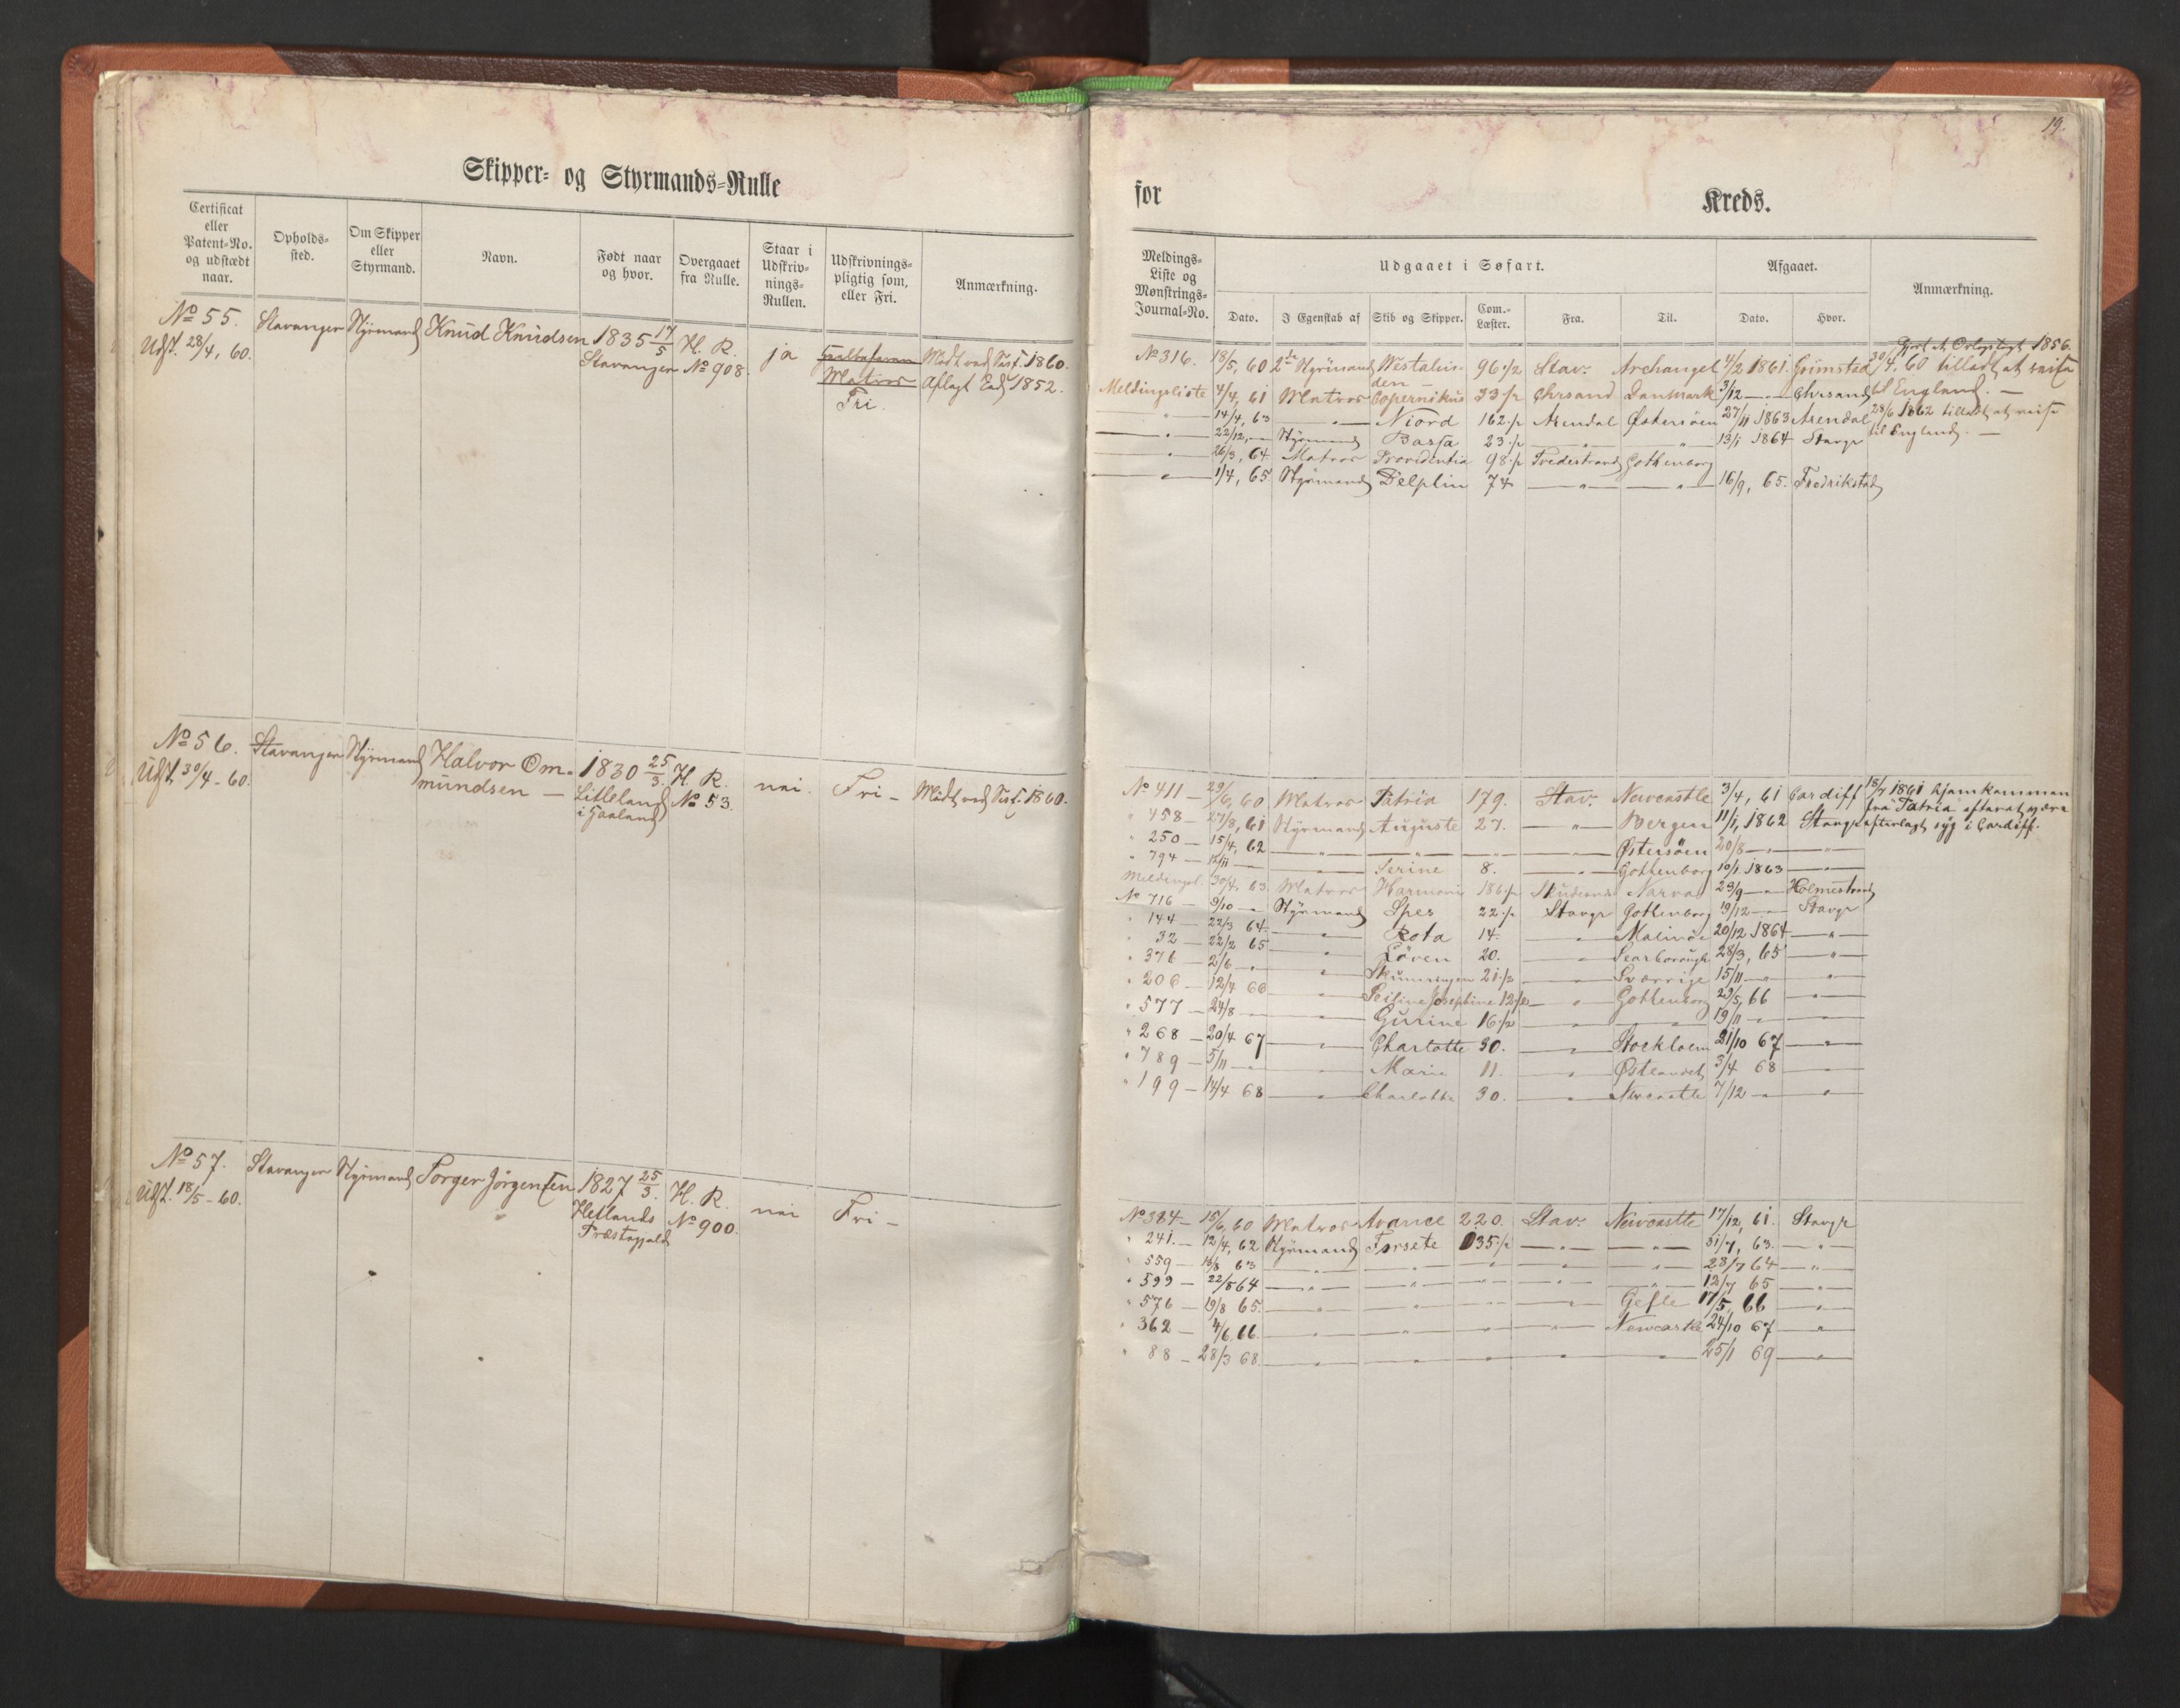 Skipper- og Styrmands-Rulle
Certificat eller Patent-No. og udstædt naar.
Opholds-sted.
Om Skipper eller Styrmand.
Navn.
Født naar og hvor.
Overgaaet fra Rulle.
Staar i Udskriv-nings-Rullen.
Udskrivnings-pligtig som, eller Fri.
Anmærkning.
No 55. Stavanger Styrmand Knud Knudsen 1835 17/5 H. R. ja Matros Mödt ved Sess. 1860.
Udst. 28/4, 60. Stavanger No 908. Fri. Aflagt Eed 1852.
No 56. Stavanger Styrmand Halvor Om- 1830 25/3. H. R. nei. Fri - Mödt ved Sess. 1860.
Udst. 30/4 - 60. mundsen — Litleland i Haaland No 53.
No 57. Stavanger Styrmand Torger Jörgensen 1827 25/3. H. R. nei Fri -
Udst. 18/5 - 60. Hetlands Præstegjeld No 900.
19.
for Kreds.
Meldings-Liste og Mønstrings-Journal-No.
Udgaaet i Søfart.
Afgaaet.
Anmærkning.
Dato. I Egenskab af Skib og Skipper. Com.-Læster. Fra. Til. Dato. Hvor.
Gjort et Orlogstogt 1856.
No 316. 18/5, 60 2den Styrmand Westalin-den — 96 1/2 Stav: Archangel 4/2 1861. Grimstad 30/4, 60 tilladt at reise til England. —
Meldingsliste 4/4, 61 Matros Copernikus 33 1/2 Chrsand Danmark 3/12 — " — Chrsand
— " — 14/4, 63 — " — Niord 162 1/2 Arendal Østersöen 27/11 1863 Arendal 28/6 1862 tilladt at reise til England. —
— " — 22/12, — Styrmand Bassa 23 1/2 — " — " 13/1 1864 Stavgr
— " — 26/3, 64 Matros Providentia 98 1/2 Tvedestrand Gothenborg
— " — 1/4, 65 Styrmand Delphin 74 — " — — " — 16/9, 65. Fredrikstad
No 411 — 29/6, 60 Matros Patria 179. Stav. Newcastle 3/4, 61 Cardiff 18/7 1861 hjemkommen
" 458 — 27/8, 61 Styrmand Auguste 27. — " — Bergen 11/1, 1862 Stavgr fra "Patria" efter at være efterlagt syg i Cardiff.
" 250 — 15/4, 62 — " — — " — — " — — " — Østersöen 20/8 — " — — " —
" 794 — 12/11 — — " — Serine 8. — " — Gothenborg 10/1 1863 — " —
Meldingsl. 30/4, 63. Matros Harmonie 186 1/2 Skudesnes Narva 29/9 — " — Holmestrand
No 716 — 9/10 — " Styrmand Spes 22 1/2 Stavgr Gothenborg 19/12 — " — Stavgr
" 144 — 22/3 64. — " — Rota 14. — " — Malmöe 20/12 1864 — " —
" 32 — 22/2 65 — " — Löven 20. — " — Scarborough 28/3, 65 — " —
" 376 — 2/6 — " — " — Skumringen 21 1/2 — " — Sverrige 15/11 — " — " —
" 206 — 12/4 66 — " — Josephine 12 1/2 — " — Gothenborg 29/5, 66 — " —
" 577 — 24/8 — " — " — Gurine 16 1/2 — " — — " — 19/11 — " — " —
" 268 — 20/4 67 — " — Charlotte 30. — " — Stockholm 21/10 67 — " —
" 789 — 5/11 — " — " — Marie 11. — " — Østlandet 3/4 68 — " —
" 199 — 14/4 68 — " — Charlotte 30. — " — Newcastle 7/12 — " — " —
No 384 — 15/6, 60 Matros Avance 220. Stav. Newcastle 17/12, 61. Stavgr
" 241. — 12/4, 62 Styrmand Forsete 135 1/2 — " — — " — 31/7, 63. — " —
" 559 — 13/8 63 — " — — " — — " — — " — — " — 28/7 64 — " —
" 599 — 22/8 64 — " — — " — — " — — " — — " — 12/7 65 — " —
" 576 — 19/8 65. — " — — " — — " — — " — Gefle 17/5, 66 — " —
" 362 — 4/6, 66. — " — — " — — " — — " — Newcastle 24/10 67 — " —
" 88 — 28/3 68. — " — — " — — " — — " — — " — 25/1 69 — " —